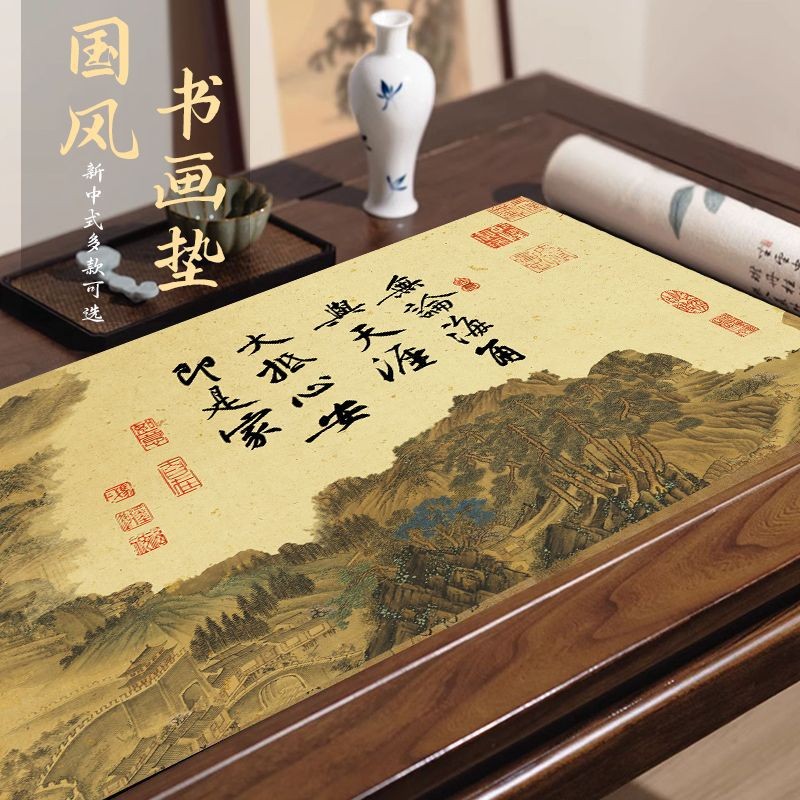 国风
书画垫
新中式多款可选
無論海角
與天涯
大抵心安
即是家